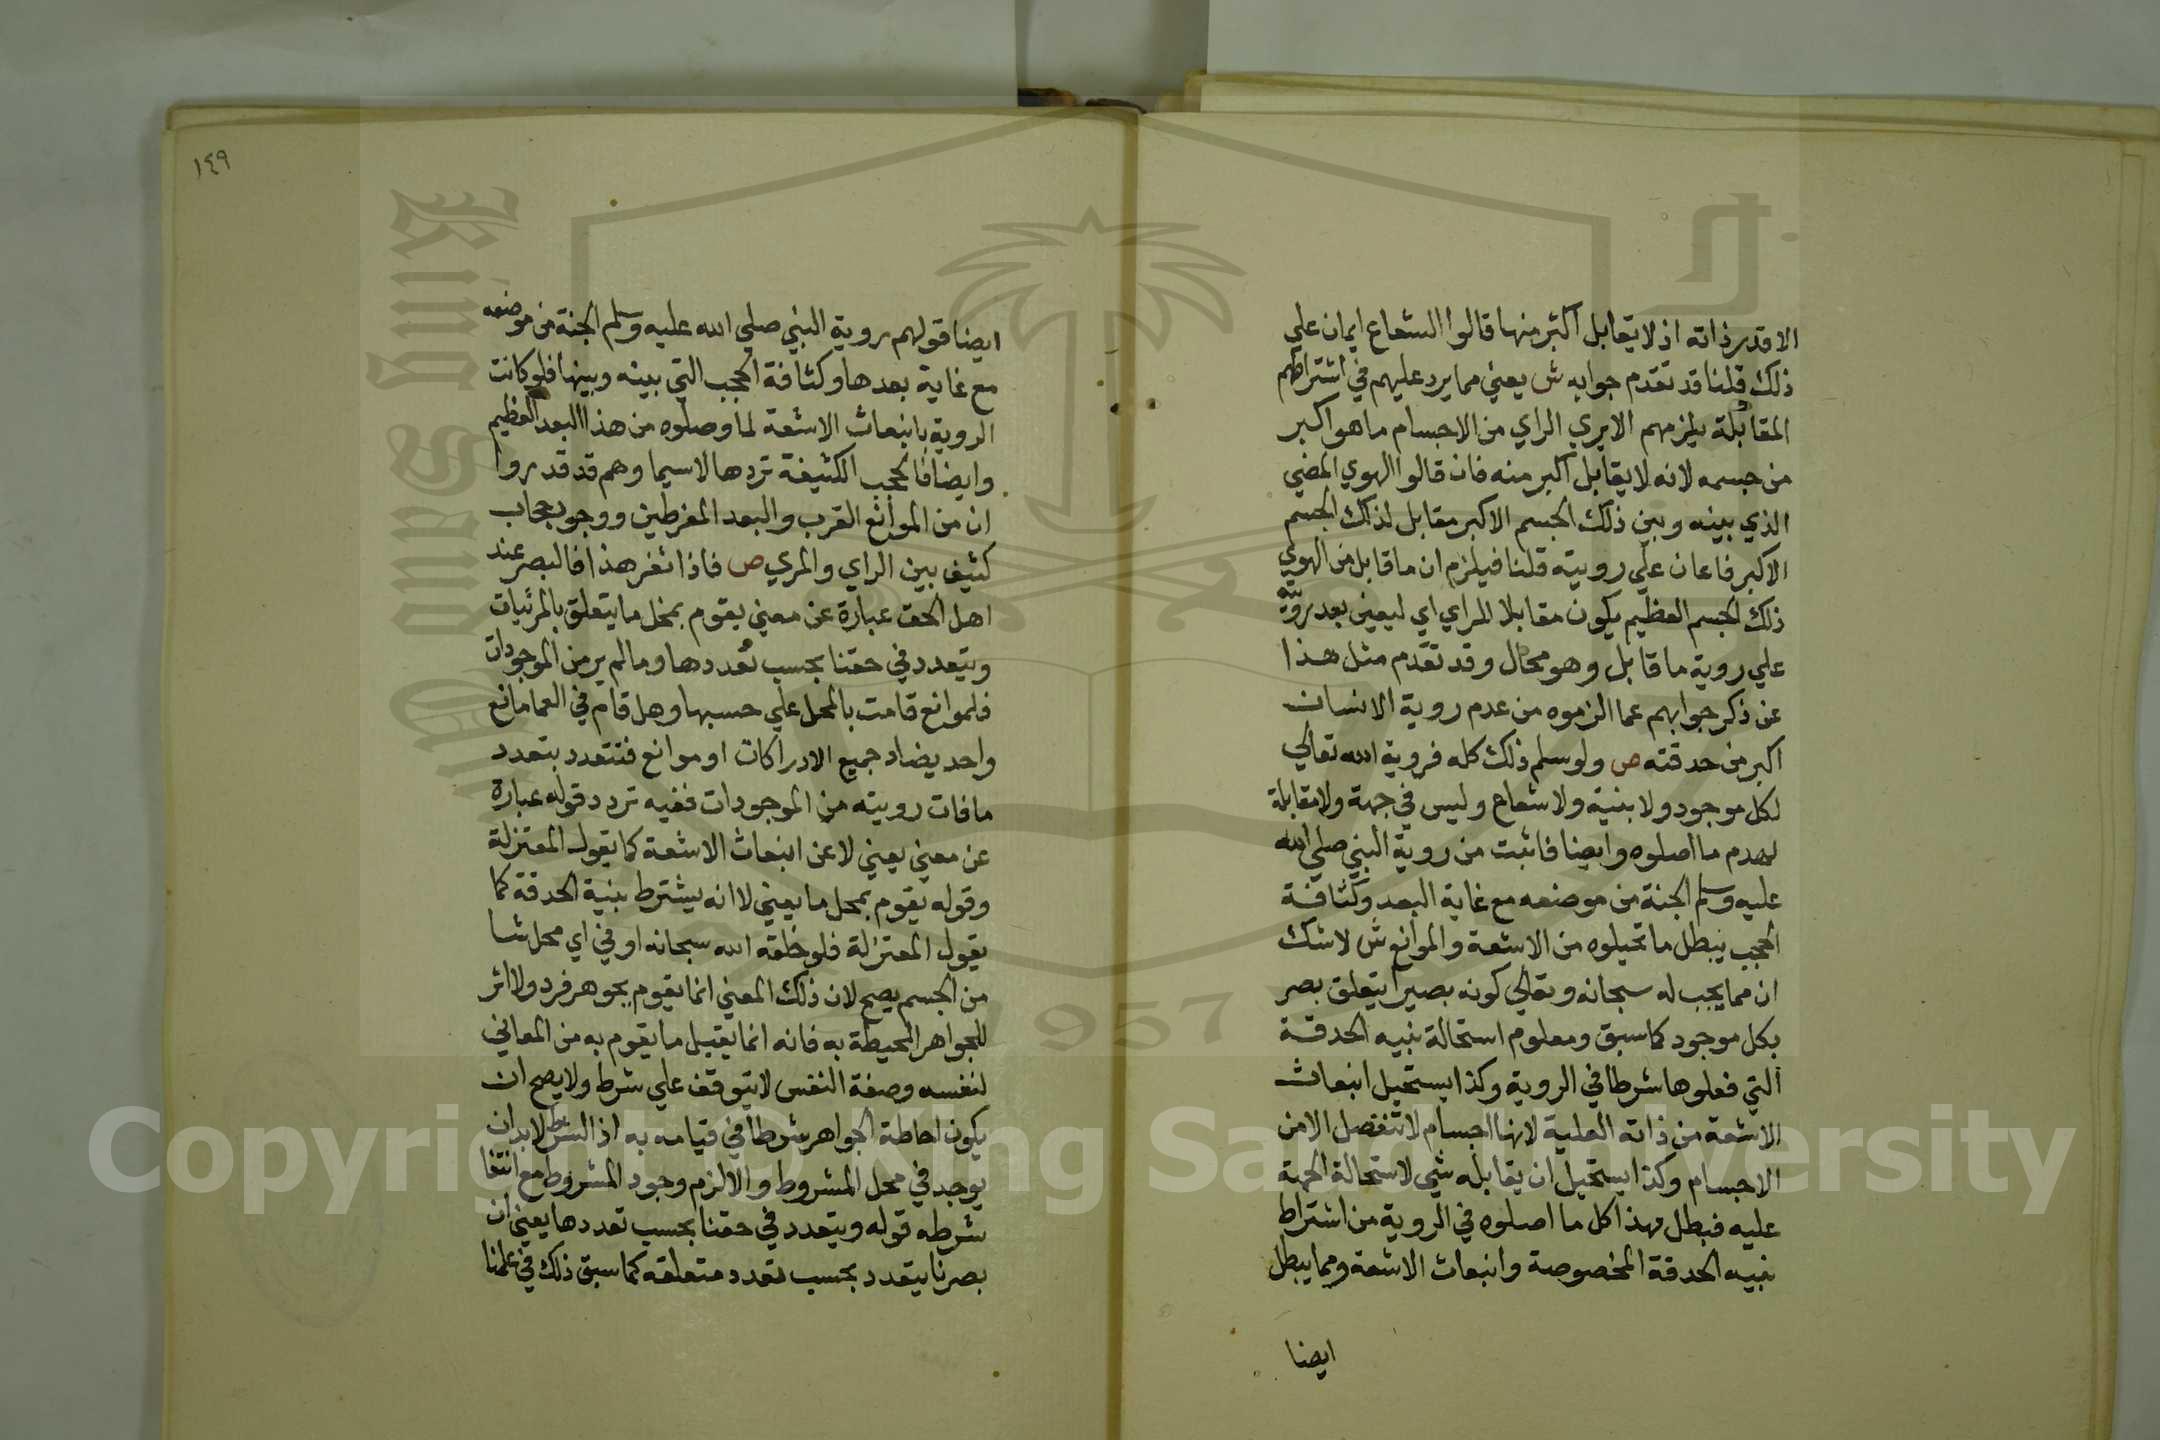 الا قدر ذاته اذ لا يقابل اكثر منها قالوا الشعاع ايمان علي
ذلك قلنا قد تقدم جوابه ش يعني مما يرد عليهم في اشتراطهم
المقابلة يلزمهم الا يري الراي من الاجسام ما هو اكبر
من جسمه لانه لا يقابل اكبر منه فان قالوا الهوي المضي
الذي بينه وبين ذلك الجسم الاكبر مقابل لذلك الجسم
الاكبر فاعان علي رويته قلنا فيلزم ان ما قابل من الهوي
ذلك الجسم العظيم يكون مقابلا للراي اي ليعين بعد رويته
علي روية ما قابل وهو محال وقد تقدم مثل هذا
عن ذكر جوابهم عما الزموه من عدم روية الانسان
اكبر من حدقته ص ولو سلم ذلك كله فروية الله تعالي
لكل موجود ولا بنية ولا شعاع وليس في جهة ولا مقابلة
لهدم ما اصلوه وايضا فاثبت من روية النبي صلي الله
عليه وسلم الجنة من موضعه مع غاية البعد وكثافة
الحجب يبطل ما تخيلوه من الاشعة والموانع ش لا شك
ان مما يجب له سبحانه وتعالي كونه بصيرا يتعلق بصر
بكل موجود كما سبق ومعلوم استحالة بنيه الحدقة
التي فعلوها شرطا في الروية وكذا يستحيل انبعاث
الاشعة من ذاته العلية لانها اجسام لا تنفصل الا من
الاجسام وكذا يستحيل ان يقابله شي لاستحالة الجهة
عليه فبطل بهذا كل ما اصلوه في الروية من اشتراط
بنيه الحدقة المخصوصة وانبعاث الاشعة ومما يبطل
ايضا
١٤٩
ايضا قولهم روية النبي صلي الله عليه وسلم الجنة من موضعه
مع غاية بعدها وكثافة الحجب التي بينه وبينها فلو كانت
الروية بانبعاث الاشعة لما وصلوه من هذا البعد العظيم
وايضا فالحجب الكثيفة تردها لا سيما وهم قد قد روا
ان من الموانع القرب والبعد المفرطين ووجود حجاب
كثيف بين الراي والمري ص فاذا تغر هذا فالبصر عند
اهل الحق عبارة عن معني يقوم بمحل ما يتعلق بالمرئيات
ويتعدد في حقنا بحسب تعددها وما لم ير من الموجودات
فلموانع قامت بالمحل علي حسبها وهل قام في العما مانع
واحد يضاد جميع الادراكات او موانع فتتعدد بتعدد
ما فات رويته من الموجودات ففيه تردد قوله عبارة
عن معني يعني لا عن انبعاث الاشعة كما تقول المعتزلة
وقوله يقوم بمحل ما يعني لا انه يشترط بنية الحدقة كما
يقول المعتزلة فلو خلقه الله سبحانه او في اي محل شا
من الجسم يصح لان ذلك المعني انما يقوم بجوهر فرد ولا اثر
للجواهر المحيطة به فانه انما يقبل ما يقوم به من المعاني
لنفسه وصفة النفس لا تتوقف علي شرط ولا يصح ان
يكون احاطة الجواهر شرطا في قيامه به اذ الشرط لا بد ان
يوجد في محل المشروط والا لزم وجود المشروط مع انتفا
شرطه قوله ويتعدد في حقنا بحسب تعددها يعني ان
بصرنا يتعدد بحسب تعدد متعلقه كما سبق ذلك في علمنا
Copyright © King Saud University
King Saud University
1957